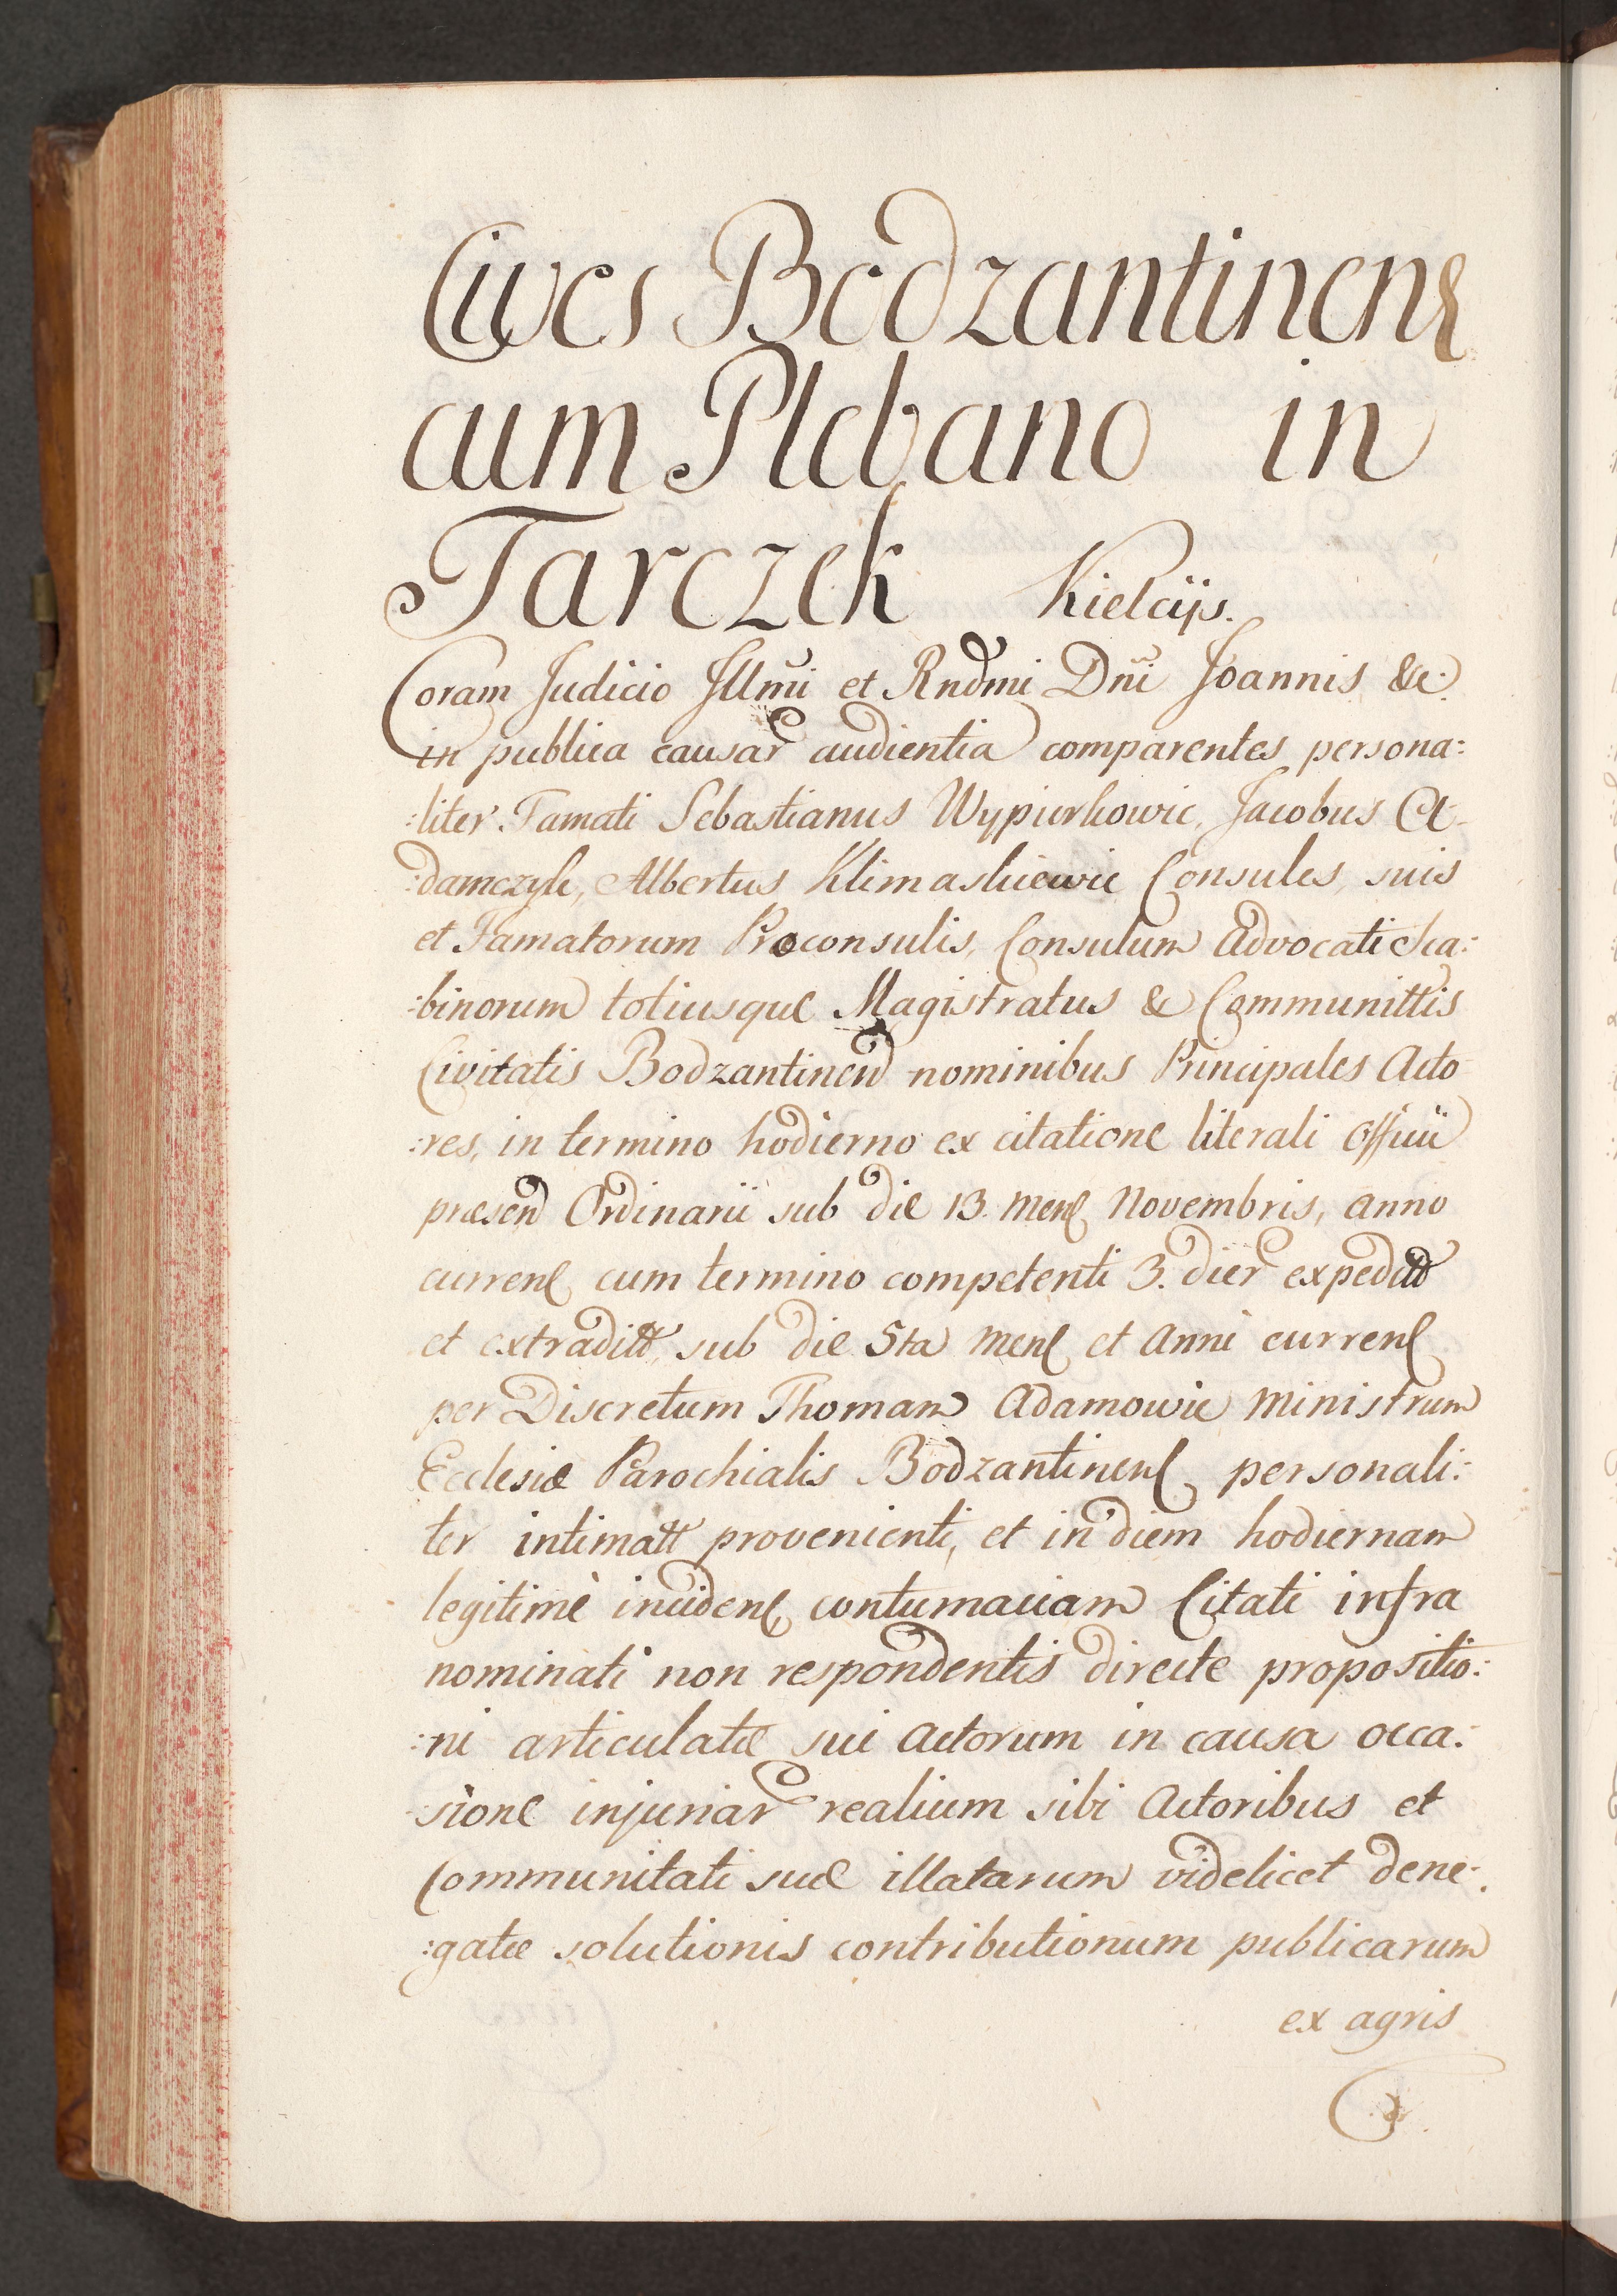 Cives Bodzantinens
cum Plebano in
Tarczek Kielcijs.
Coram Judicio Illmi et Rndmi Dni Joannis &c:
in publica causar audientia comparentes persona:
:liter Famati Sebastianus Wypiorkowic, Jacobus A-
:damczyk, Albertus Klimaskiewic Consules, suis
et Famatorum Proconsulis, Consulum Advocati Sca:
:binorum totiusque Magistratus & Communittis
Civitatis Bodzantinen nominibus Principales Acto
:res, in termino hodierno ex citatione literali Officii
præsen Ordinarii sub die 13. Mens Novembris, anno
currens cum termino competenti 3. dier expeditt
et extraditt, sub die 5ta Mens et Anni currens
per Discretum Thomam Adamowic Ministrum
Ecclesiæ Parochialis Bodzantinens personali:
ter intimatt provenienti, et in diem hodiernam
legitimè incidens contumaciam Citati infra
nominati non respondentis directe propositio:
:ni articulatæ sui Actorum in causa occa:
sione injuriar realium sibi Actoribus et
Communitati suæ illatarum videlicet dene:
:gatæ solutionis contributionum publicarum
ex agris